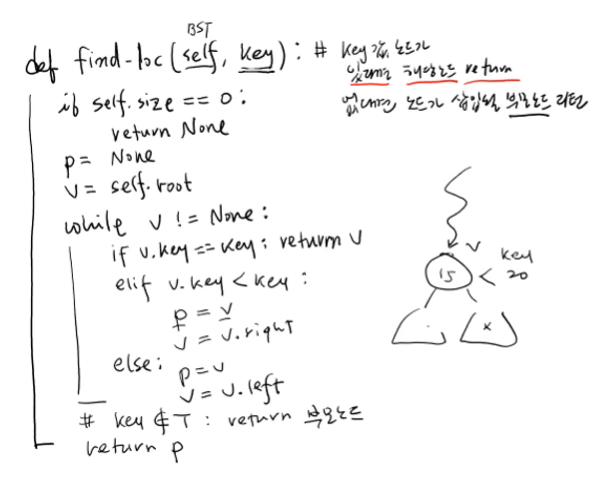 BST
def find-loc(self, key): # key 값 노드가
있다면 해당노드 return
if self.size == 0: 없다면 노드가 삽입될 부모노드 리턴
return None
p = None
v = self.root
while v != None:
if v.key == key: return v
elif v.key < key:
p = v
v = v.right
else: p = v
v = v.left
# key ∉ T : return 부모노드
return p
v
key
15 < 20
x